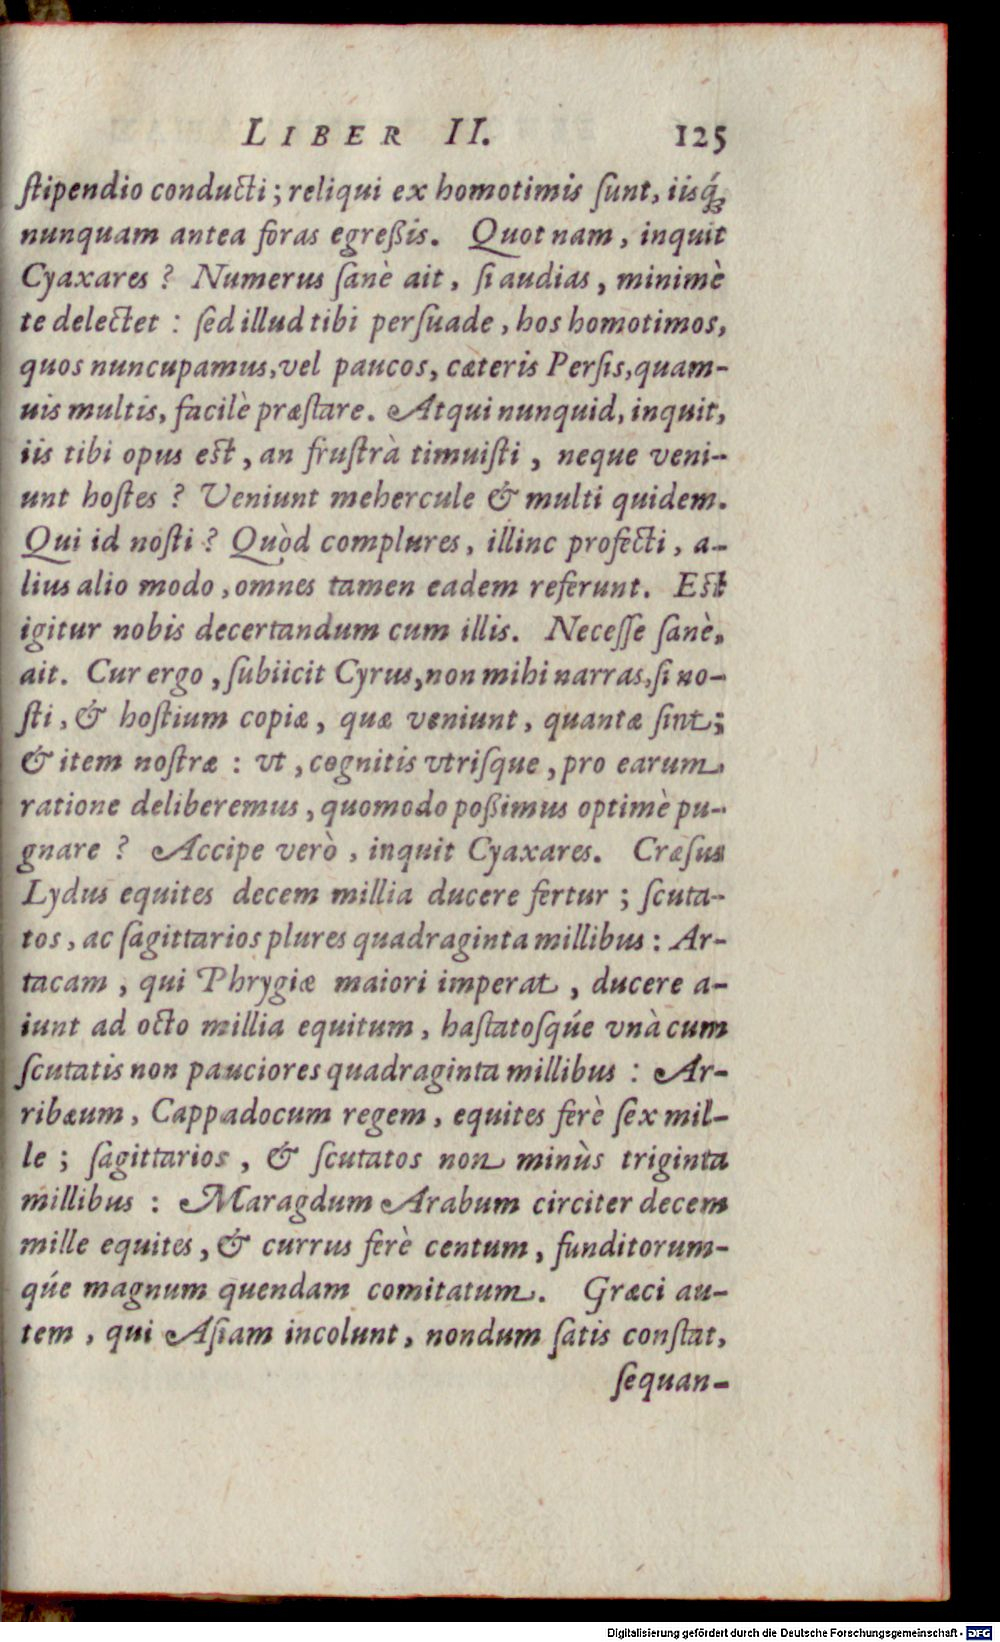 LIBER II. 125
ſtipendio conducti; reliqui ex homotimis ſunt, iisq́;
nunquam antea foras egreßis. Quot nam, inquit
Cyaxares? Numerus ſanè ait, ſi audias, minimè
te delectet: ſed illud tibi perſuade, hos homotimos,
quos nuncupamus, vel paucos, cæteris Perſis, quam-
uis multis, facilè præſtare. Atqui nunquid, inquit,
iis tibi opus est, an fruſtrà timuiſti, neque veni-
unt hoſtes? Veniunt mehercule & multi quidem.
Qui id noſti? Quòd complures, illinc profecti, a-
lius alio modo, omnes tamen eadem referunt. Est
igitur nobis decertandum cum illis. Neceſſe ſanè,
ait. Cur ergo, ſubiicit Cyrus, non mihi narras, ſi no-
ſti, & hoſtium copiæ, quæ veniunt, quantæ ſint;
& item noſtræ: vt, cognitis vtriſque, pro earum
ratione deliberemus, quomodo poßimus optimè pu-
gnare? Accipe verò, inquit Cyaxares. Cræſus
Lydus equites decem millia ducere fertur; ſcuta-
tos, ac ſagittarios plures quadraginta millibus: Ar-
tacam, qui Phrygiæ maiori imperat, ducere a-
iunt ad octo millia equitum, haſtatoſqúe vnà cum
ſcutatis non pauciores quadraginta millibus: Ar-
ribæum, Cappadocum regem, equites ferè ſex mil-
le; ſagittarios, & ſcutatos non minùs triginta
millibus: Maragdum Arabum circiter decem
mille equites, & currus ferè centum, funditorum-
qúe magnum quendam comitatum. Græci au-
tem, qui Aſiam incolunt, nondum ſatis conſtat,
ſequan-
Digitalisierung gefördert durch die Deutsche Forschungsgemeinschaft - DFG